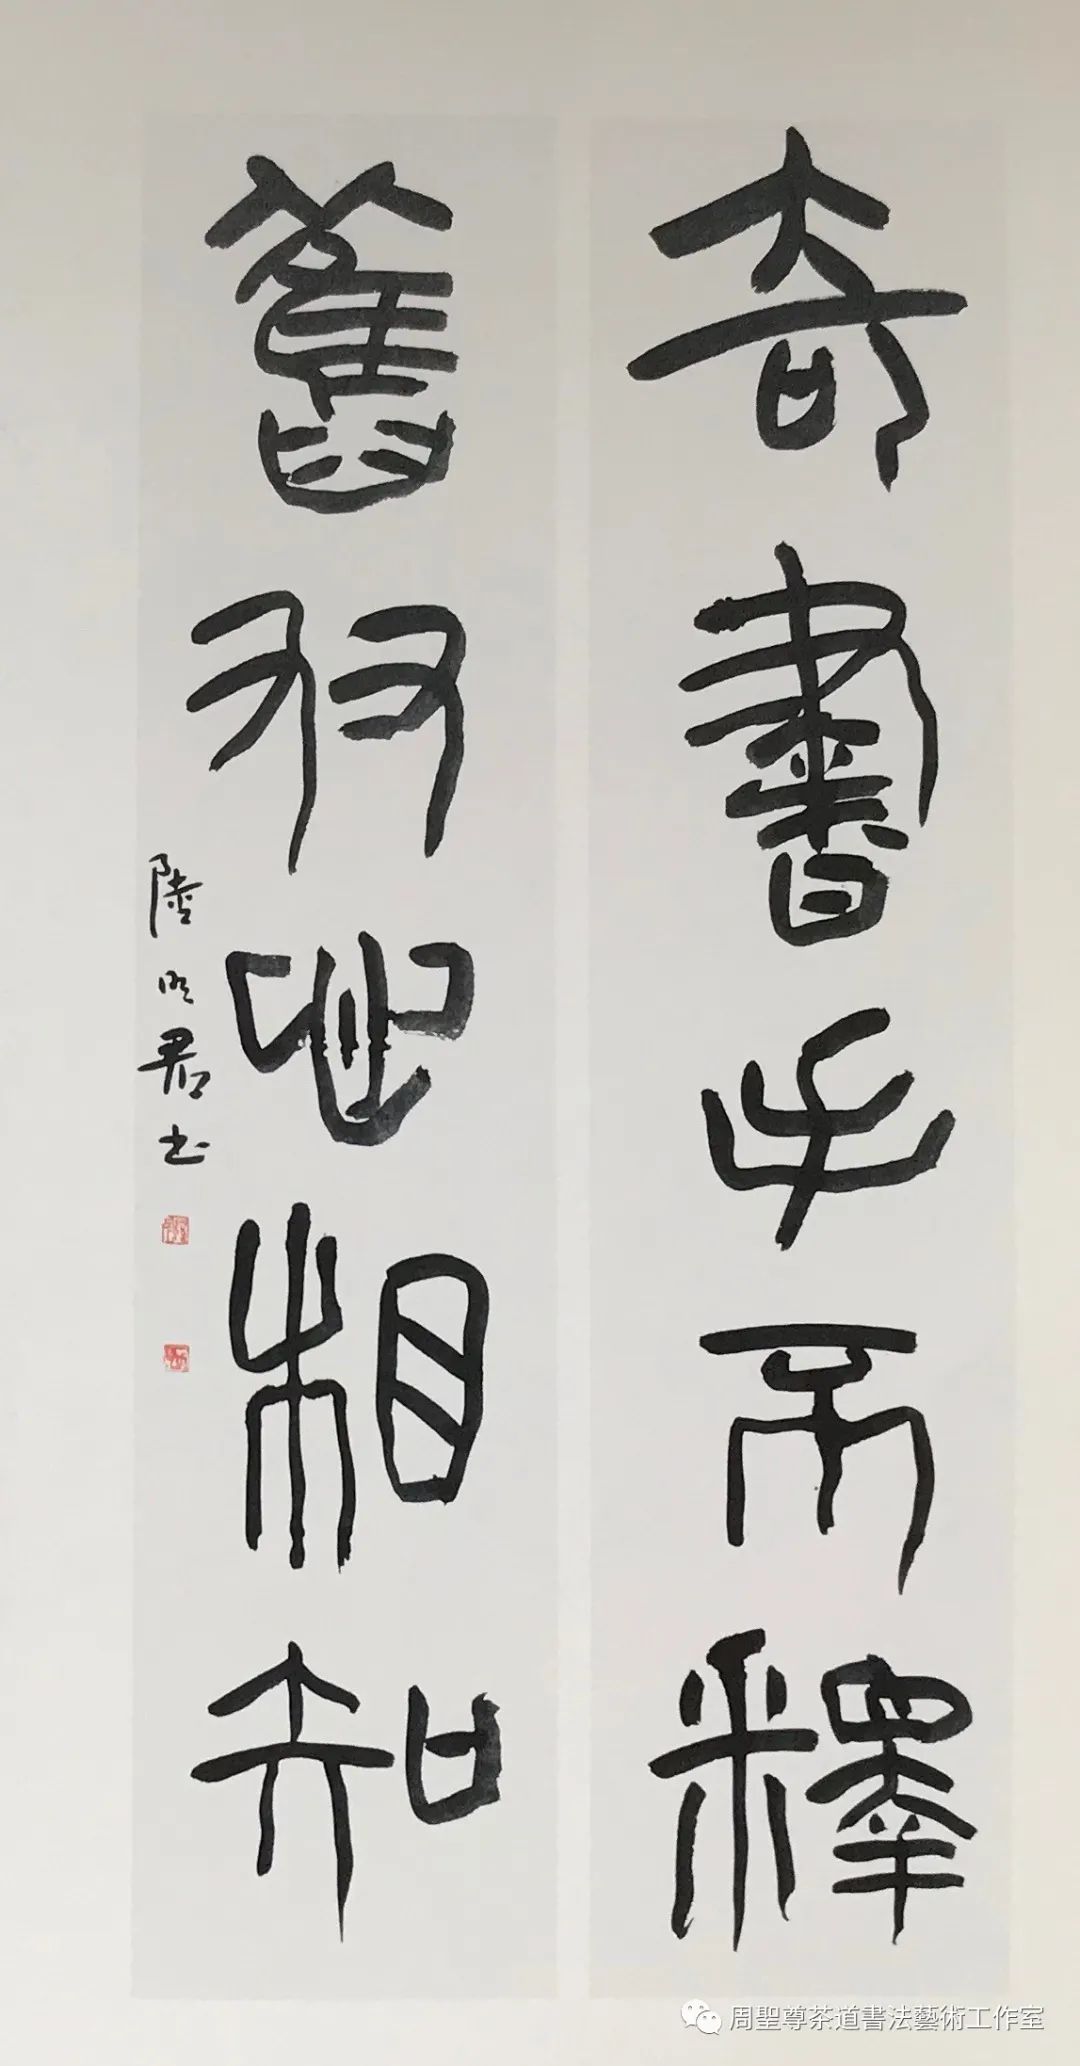 奇書手不釋
舊友心相知
陸明君书
周聖尊茶道書法藝術工作室